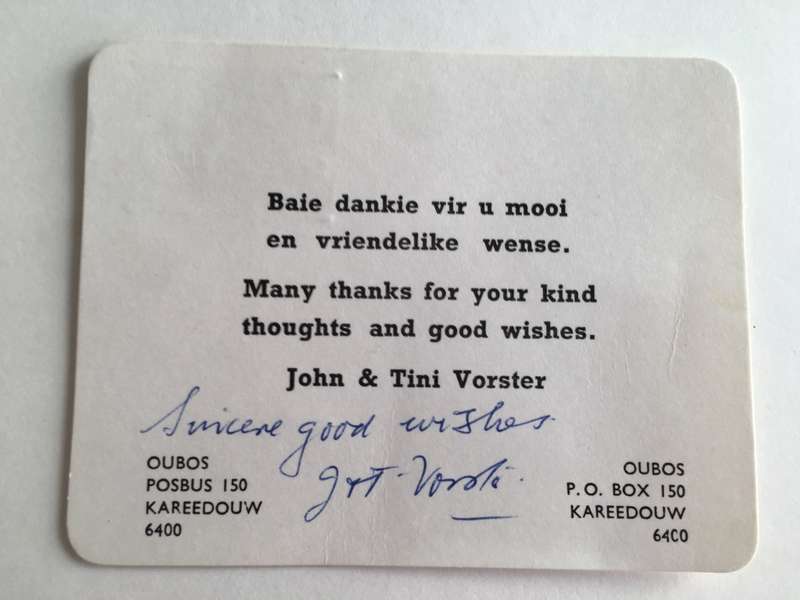 Baie dankie vir u mooi
en vriendelike wense.
Many thanks for your kind
thoughts and good wishes.
John & Tini Vorster
Sincere good wishes
J & T. Vorster.
OUBOS
POSBUS 150
KAREEDOUW
6400
OUBOS
P.O. BOX 150
KAREEDOUW
6400